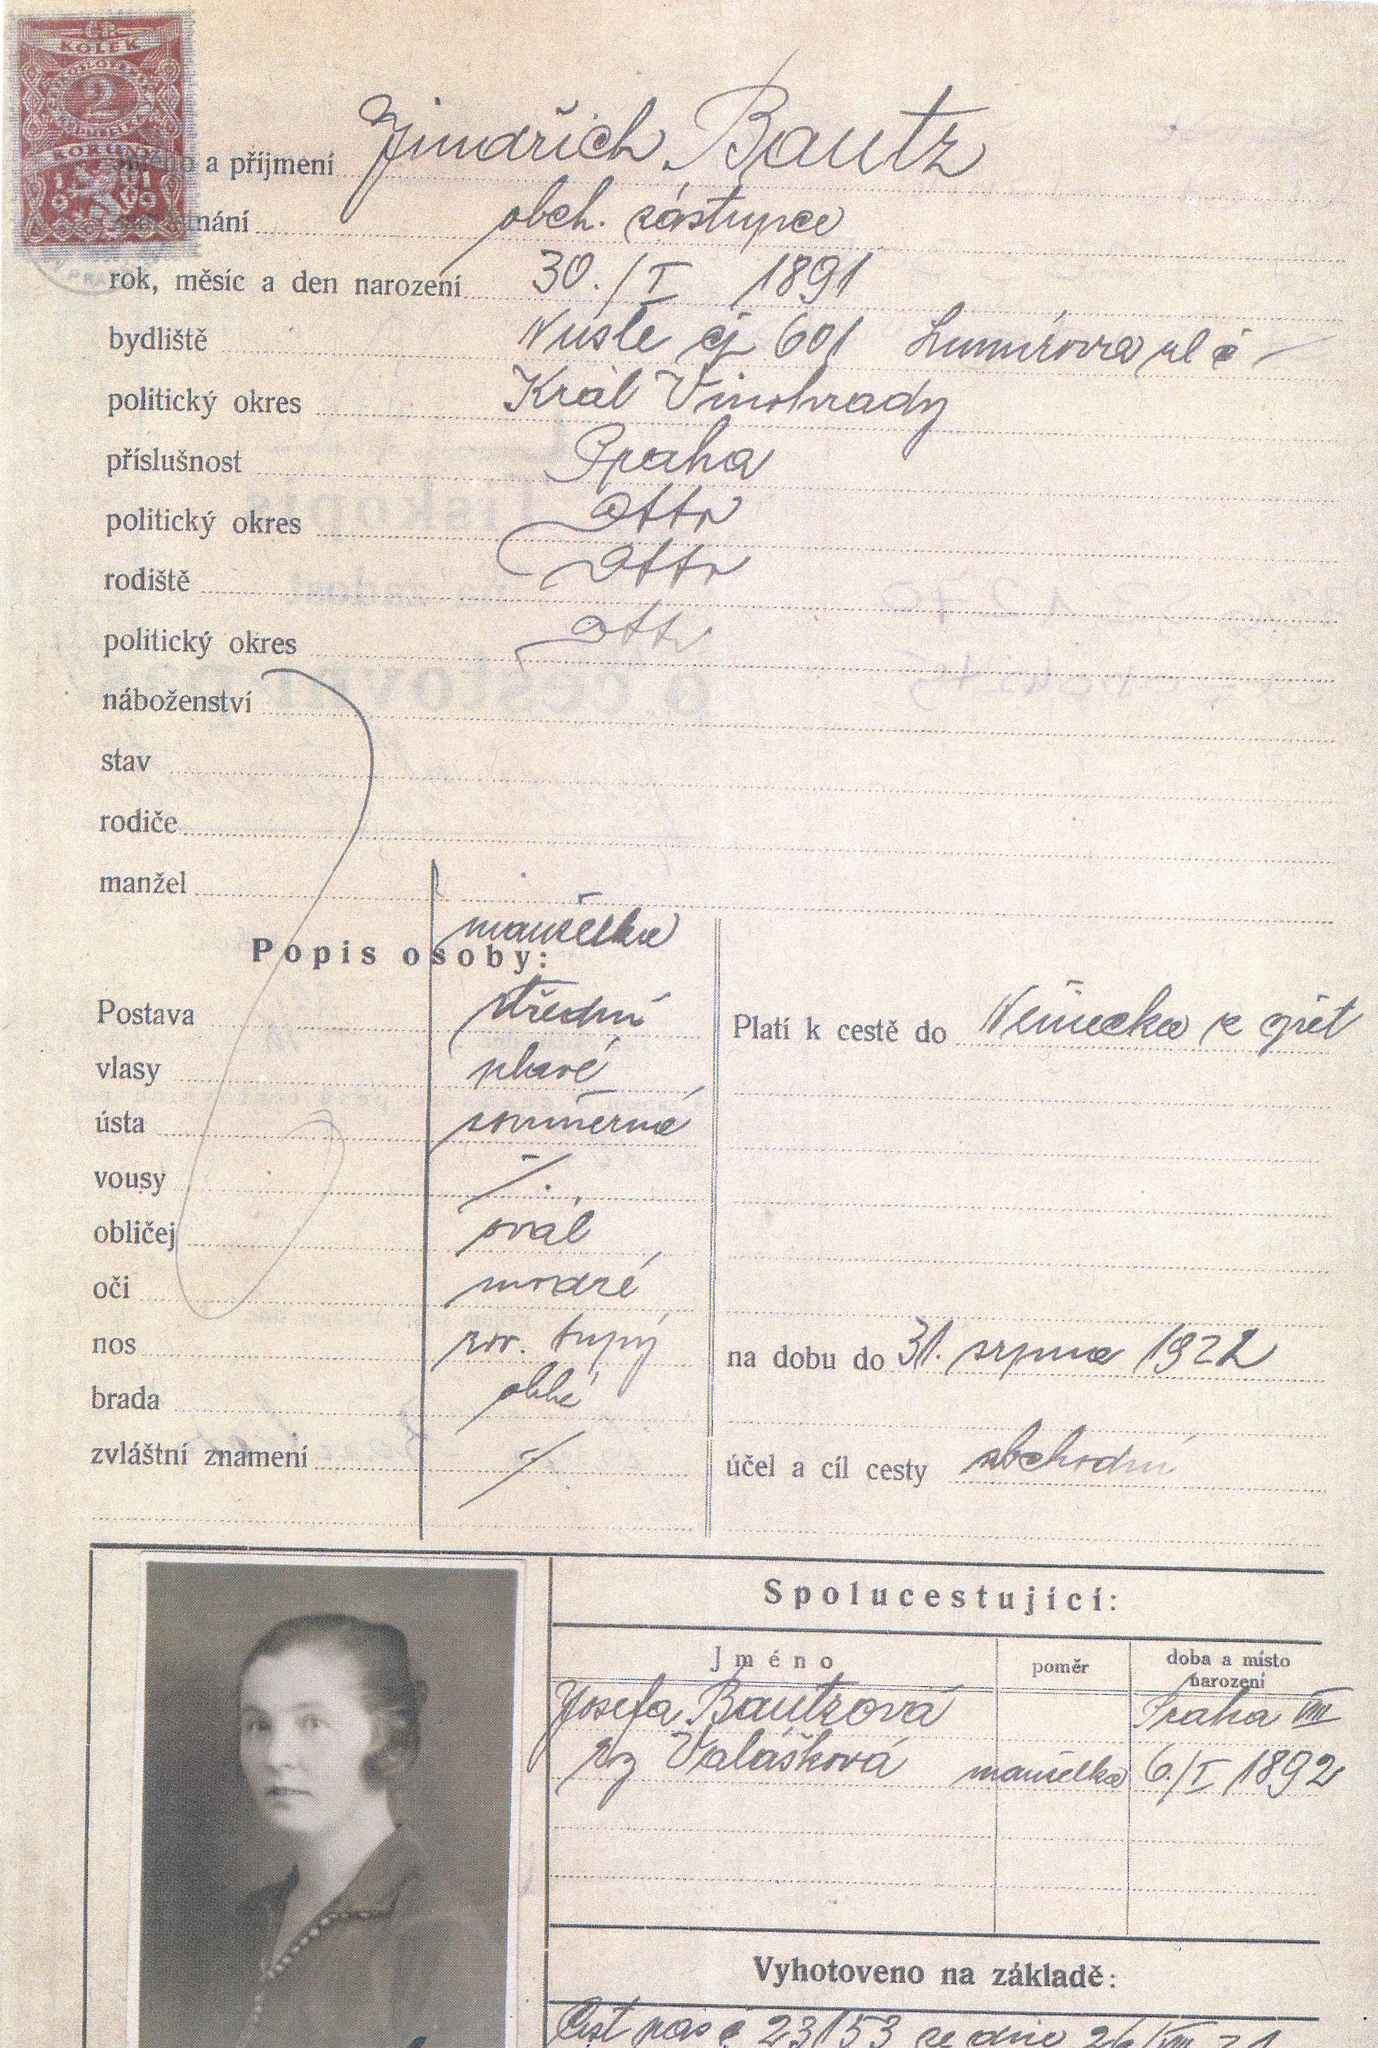 KOLEK
2
KORUNY
1919
a příjmení Jindřich Bautz
obch. zástupce
rok, měsíc a den narození 30./I 1891
bydliště Nusle čj 601 Lumírova ul č —
politický okres Král Vinohrady
příslušnost Praha
politický okres dtto
rodiště dtto
politický okres dtto
náboženství
stav
rodiče
manžel
manželka
Popis osoby:
Postava střední
vlasy plavé
ústa souměrné
vousy ·/.
obličej ovál
oči modré
nos tupý
brada oblé
zvláštní znamení -/
Platí k cestě do Německa a zpět
na dobu do 31. srpna 1922
účel a cíl cesty obchodní
Spolucestující:
Jméno poměr doba a místo
narození
Josefa Bautzová Praha VIII
roz Valášková manželka 6./I 1892
Vyhotoveno na základě:
Cest pas č 23153 ze dne